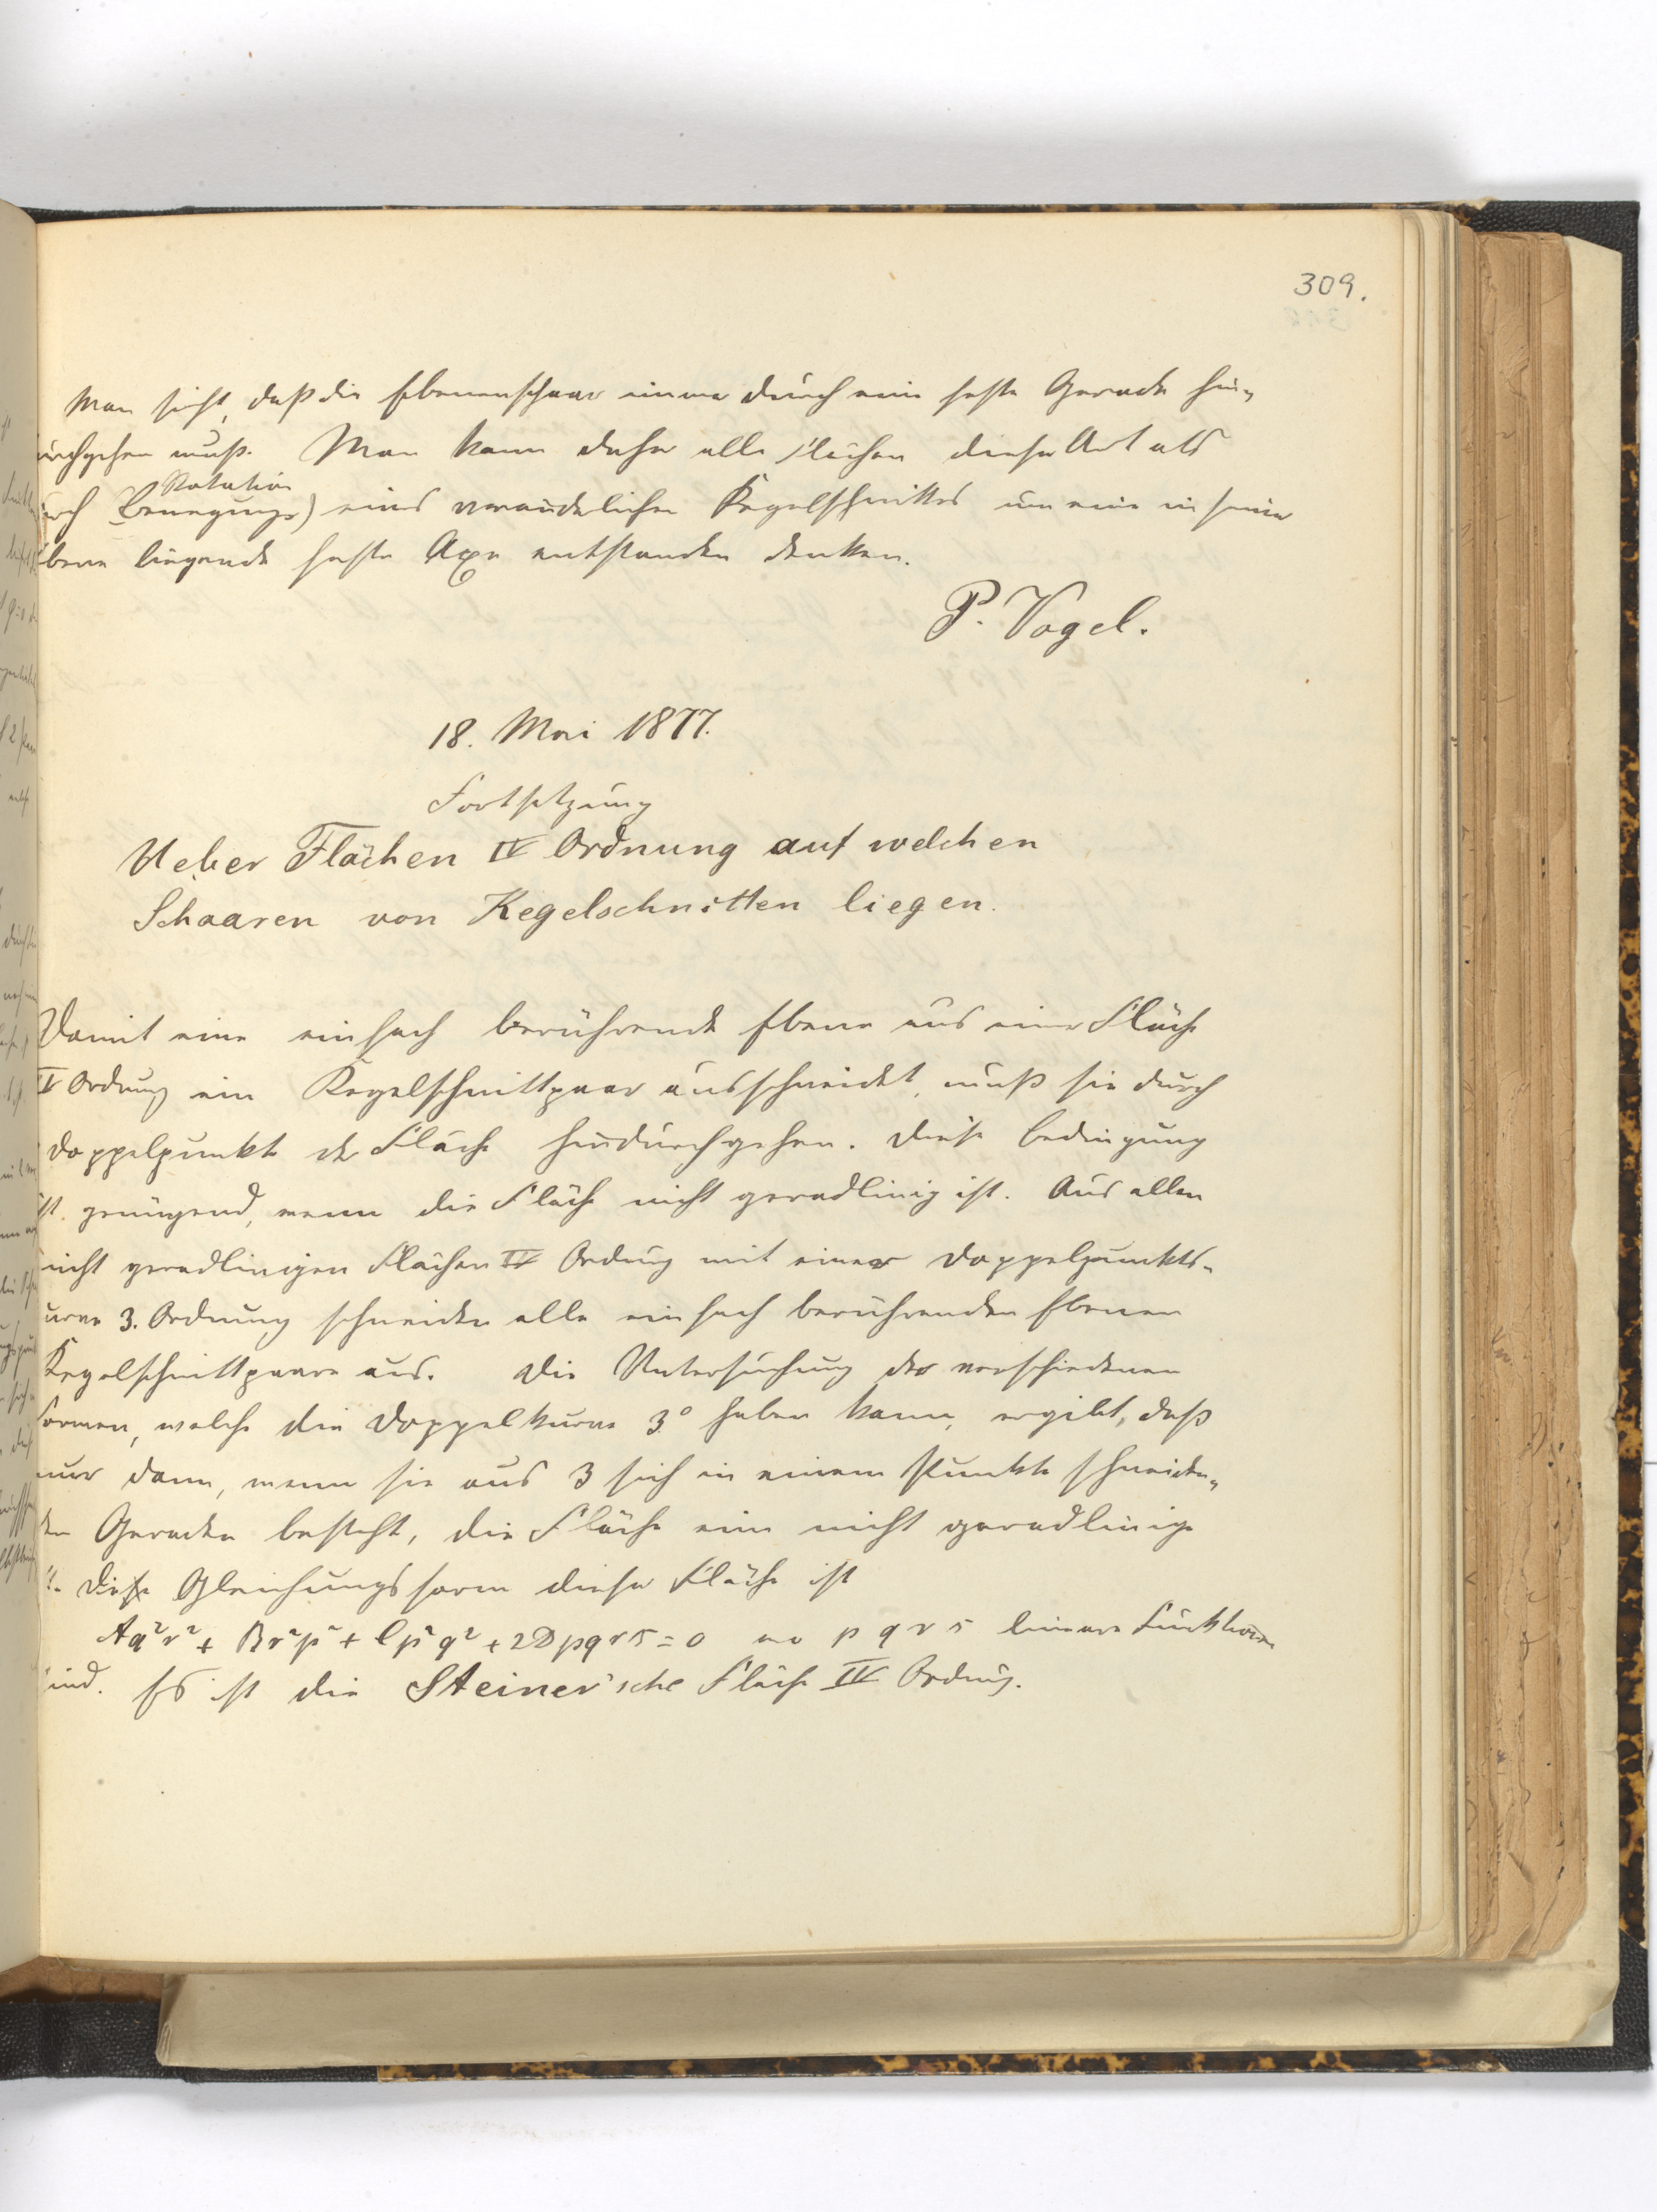 309.
Man sieht, daß die Ebenenschaar immer durch eine feste Gerade hin-
durchgehen muß. Man kann daher alle Flächen dieser Art als
Rotation
durch Bewegung) eines veränderlichen Kegelschnittes um eine in seiner
Ebene liegende feste Axe entstanden denken.
P. Vogel.
18. Mai 1877.
Fortsetzung
Ueber Flächen IV Ordnung auf welchen
Schaaren von Kegelschnitten liegen.
Damit eine einfach berührende Ebene aus einer Fläche
IV Ordnung ein Kegelschnittpaar ausschneidet, muß sie durch
Doppelpunkte der Fläche hindurchgehen. Diese Bedingung
ist genügend, wenn die Fläche nicht geradlinig ist. Aus allen
nicht geradlinigen Flächen IV Ordnung mit einer Doppelpunkts-
curve 3. Ordnung schneiden alle einfach berührenden Ebenen
Kegelschnittpaare aus. Die Untersuchung der verschiedenen
Formen, welche die Doppelkurve 3° haben kann, ergibt, daß
nur dann, wenn sie aus 3 sich in einem Punkte schneiden-
den Geraden besteht, die Fläche eine nicht geradlinige
ist. Die Gleichungsform dieser Fläche ist
Aq²r² + Br²p² + Cp²q² + 2Dpqrs = 0 wo p q r s lineare Funktionen
sind. Es ist die Steiner'sche Fläche IV Ordnung.